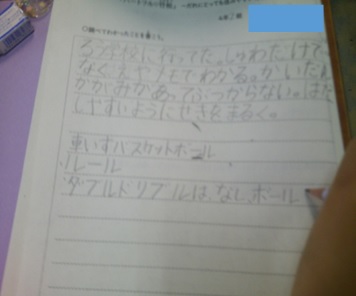 ○調べてわかったことを書こう。
ろう学校に行ってた。しゅわだけで
なくえやメモでわかる。かいだん
かがみがあってぶつからない。はな
しやすいようにせきをまるく。
車いすバスケットボール
ルール
ダブルドリブルは、なし、ボール